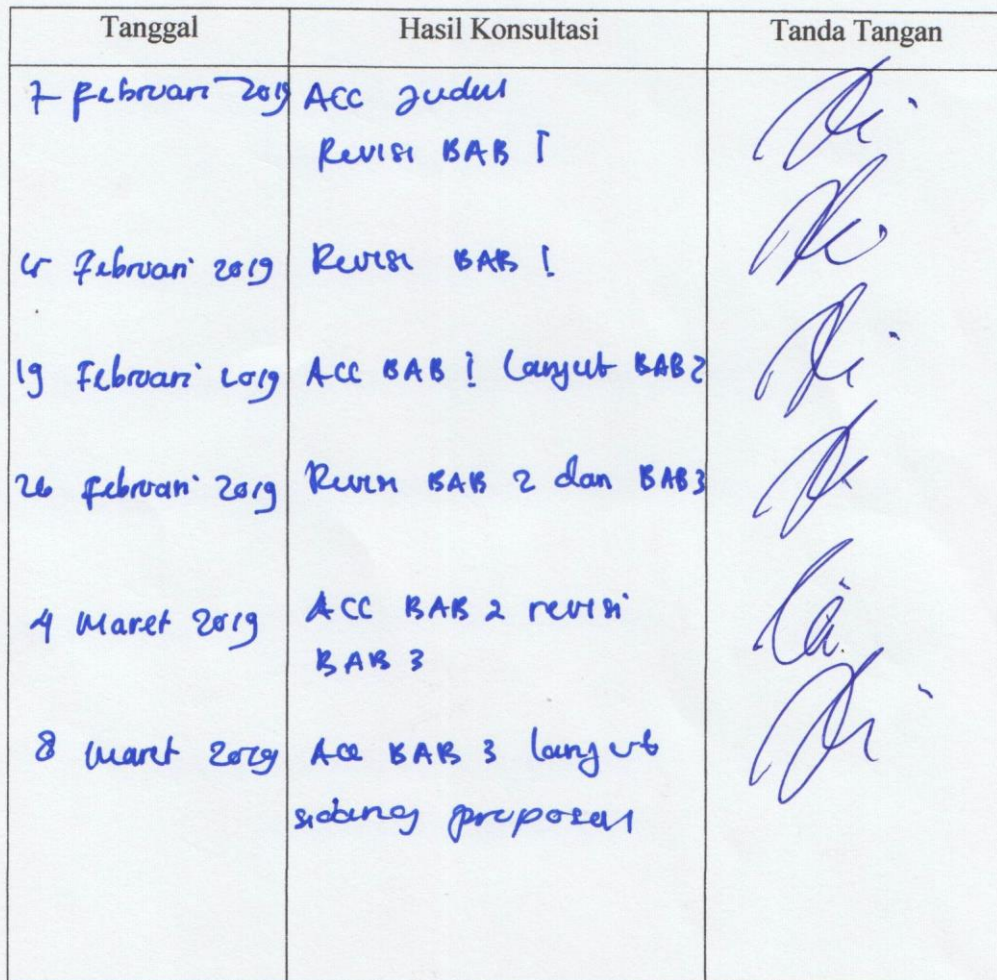 Tanggal Hasil Konsultasi Tanda Tangan
7 Februari 2019 ACC Judul
Revisi BAB I
Februari 2019 Revisi BAB I
19 Februari 2019 ACC BAB I lanjut BAB 2
26 Februari 2019 Revisi BAB 2 dan BAB 3
4 Maret 2019 ACC BAB 2 revisi
BAB 3
8 Maret 2019 Acc BAB 3 lanjut
sidang proposal